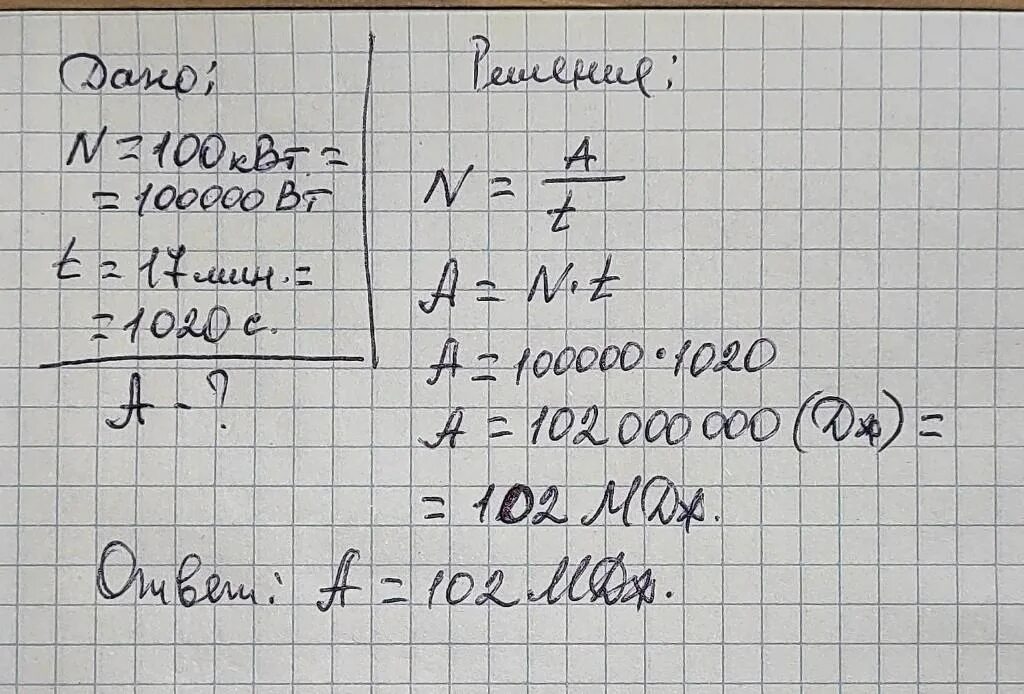 Дано:
N = 100 кВт =
= 100000 Вт
t = 17 мин. =
= 1020 с.
A - ?
Решение:
N = A / t
A = N · t
A = 100000 · 1020
A = 102 000 000 (Дж) =
= 102 МДж.
Ответ: A = 102 МДж.